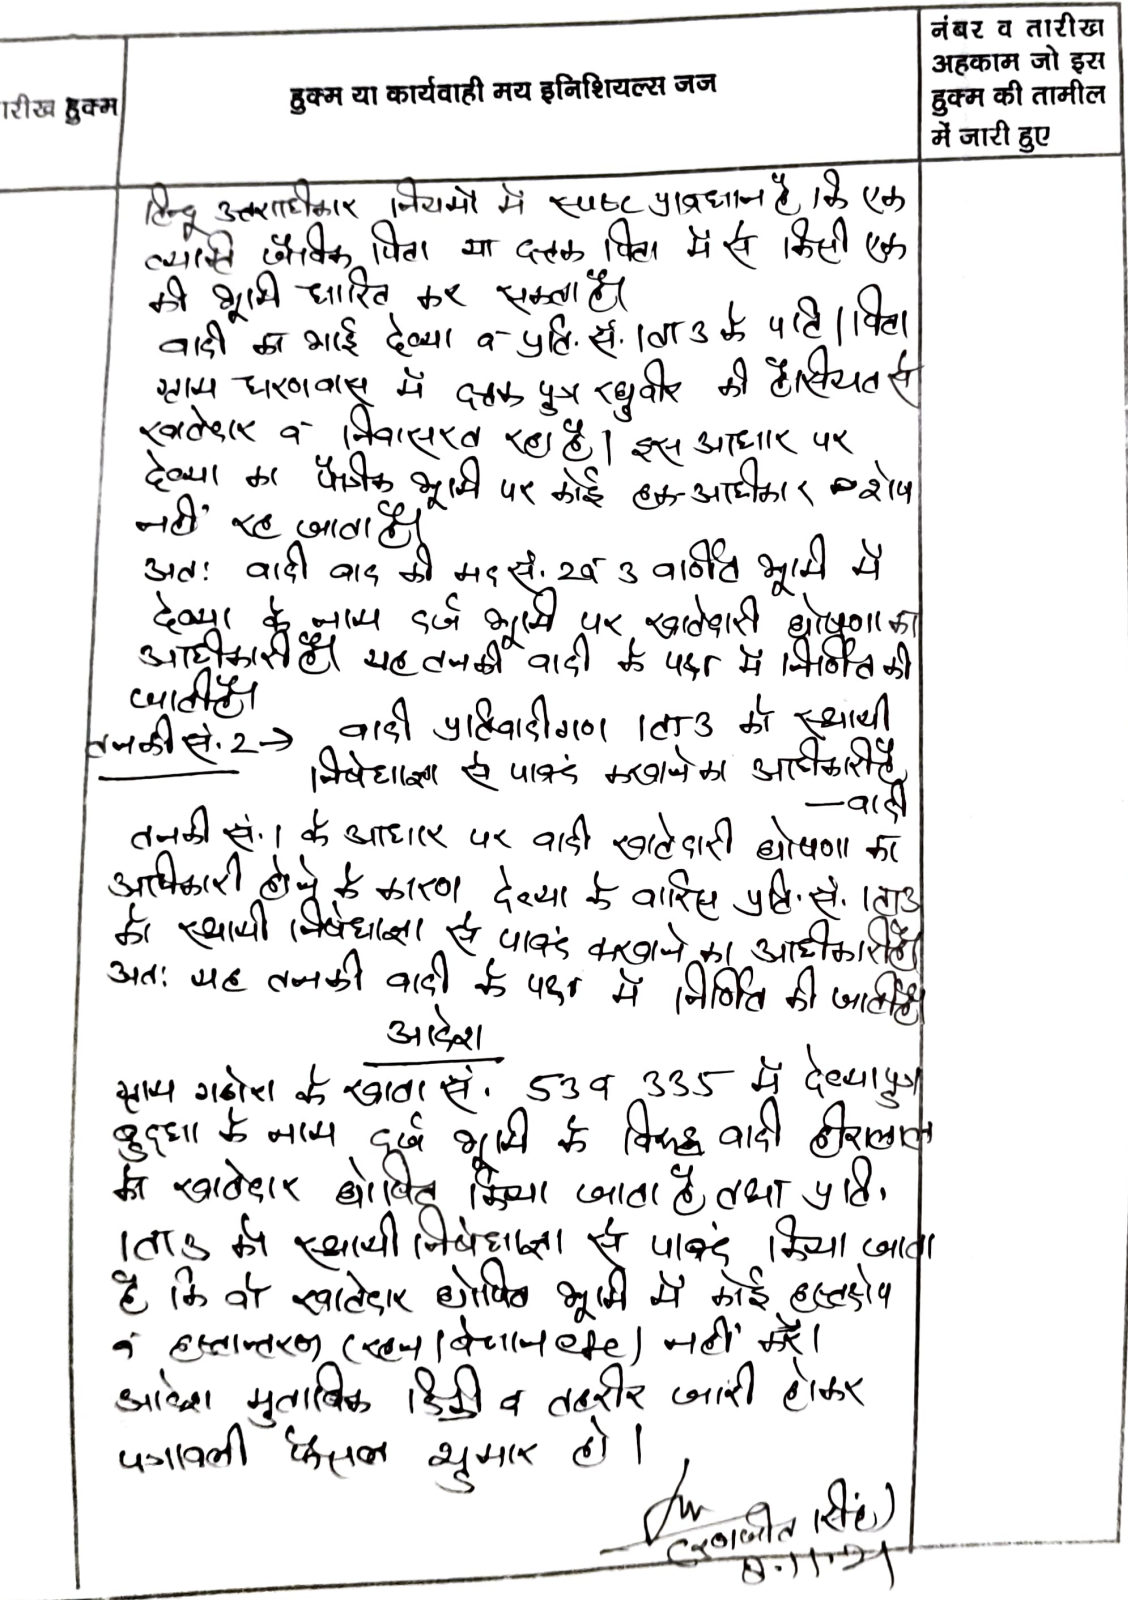 नंबर व तारीख
अहकाम जो इस
हुक्म की तामील
में जारी हुए
हुक्म या कार्यवाही मय इनिशियल्स जज
ारीख हुक्म
हिन्दू उत्तराधीकार नियमों में स्पष्ट प्रावधान है कि एक
व्यक्ति जैविक पिता या दत्तक पिता में से किसी एक
की भूमि धारित कर सकता है।
वादी का भाई देव्या व प्रति. सं. 1 ता 3 के पति / पिता
ग्राम धरणवास में दत्तक पुत्र रघुवीर की हैसियत से
खातेदार व निवासरत रहा है। इस आधार पर
देव्या का पैतृक भूमि पर कोई हक-अधीकार शेष
नहीं रह जाता है।
अतः वादी वाद की मद सं. 2 व 3 वर्णित भूमि में
देव्या के नाम दर्ज भूमि पर खातेदारी घोषणा का
अधीकारी है। यह तनकी वादी के पक्ष में निर्णित की
जाती है।
तनकी सं. 2 → वादी प्रतिवादीगण 1 ता 3 को स्थायी
निषेधाज्ञा से पाबंद करवाने का अधीकारी है
— वादी
तनकी सं. 1 के आधार पर वादी खातेदारी घोषणा का
अधिकारी होने के कारण देव्या के वारिस प्रति. सं. 1 ता 3
को स्थायी निषेधाज्ञा से पाबंद करवाने का अधीकारी है।
अतः यह तनकी वादी के पक्ष में निर्णित की जाती है।
आदेश
ग्राम गठोरा के खाता सं. 53 व 335 में देव्या पुत्र
बुद्धा के नाम दर्ज भूमि के विरुद्ध वादी हीरालाल
को खातेदार घोषित किया जाता है तथा प्रति.
1 ता 3 को स्थायी निषेधाज्ञा से पाबंद किया जाता
है कि वो खातेदार घोषित भूमि में कोई हस्तक्षेप
व हस्तान्तरण (रहन / बेचान etc) नहीं करें।
आदेश मुताबिक डिक्री व तहरीर जारी होकर
पत्रावली फैसल शुमार हो।
(रणजीत सिंह)
8.11.21